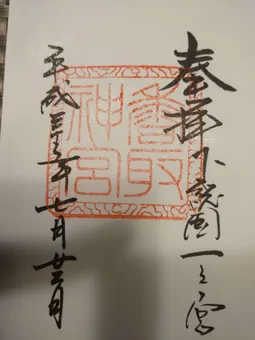 奉拝
下総国一之宮
香取
神宮
平成三十年七月廿二日